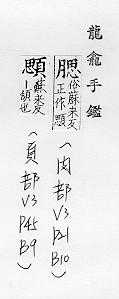 龍龕手鑑
腮
俗蘇来反
正作顋
（肉部
V3
P21
B10）
顋
蘇来反
也
（頁部
V3
P45
B9）